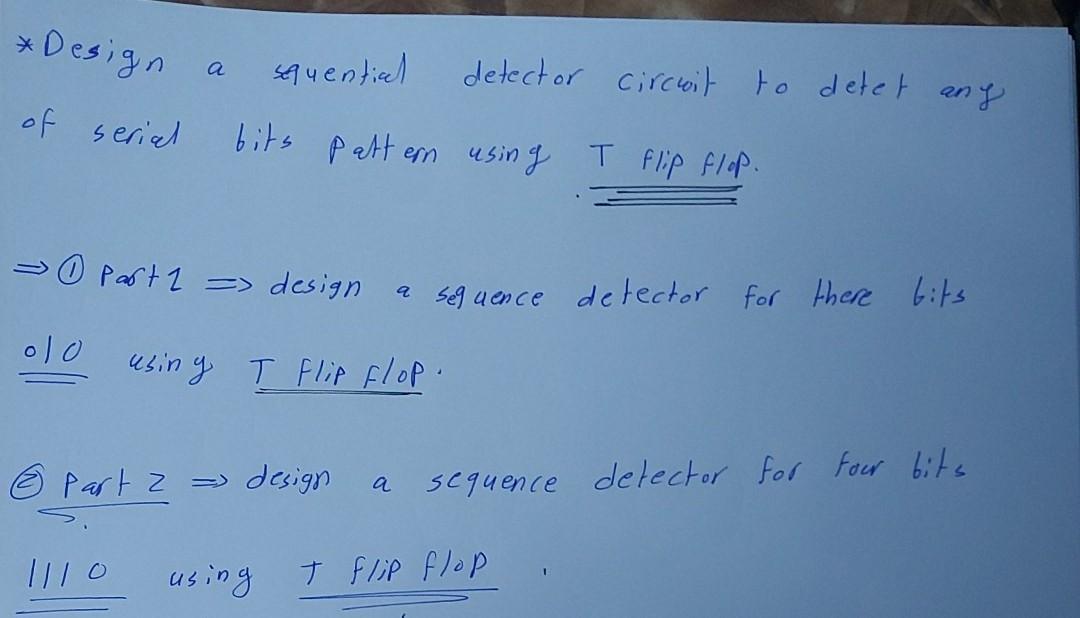 * Design a sequential detector circuit to detet any
of serial bits pattern using T flip flop.
⇒ ① Part 1 ⇒ design a sequence detector for there bits
010 using T flip flop.
② Part 2 ⇒ design a sequence detector for four bits
1110 using T flip flop.